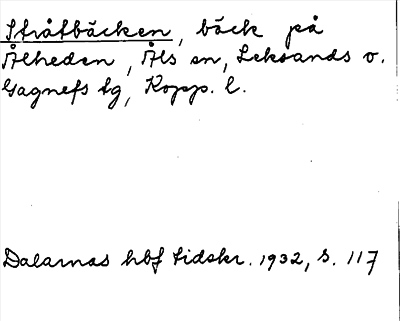 Stråtbäcken, bäck på
Ålheden, Åls sn, Leksands o.
Gagnefs tg, Kopp. l.
Dalarnas hbf tidskr. 1932, s. 117